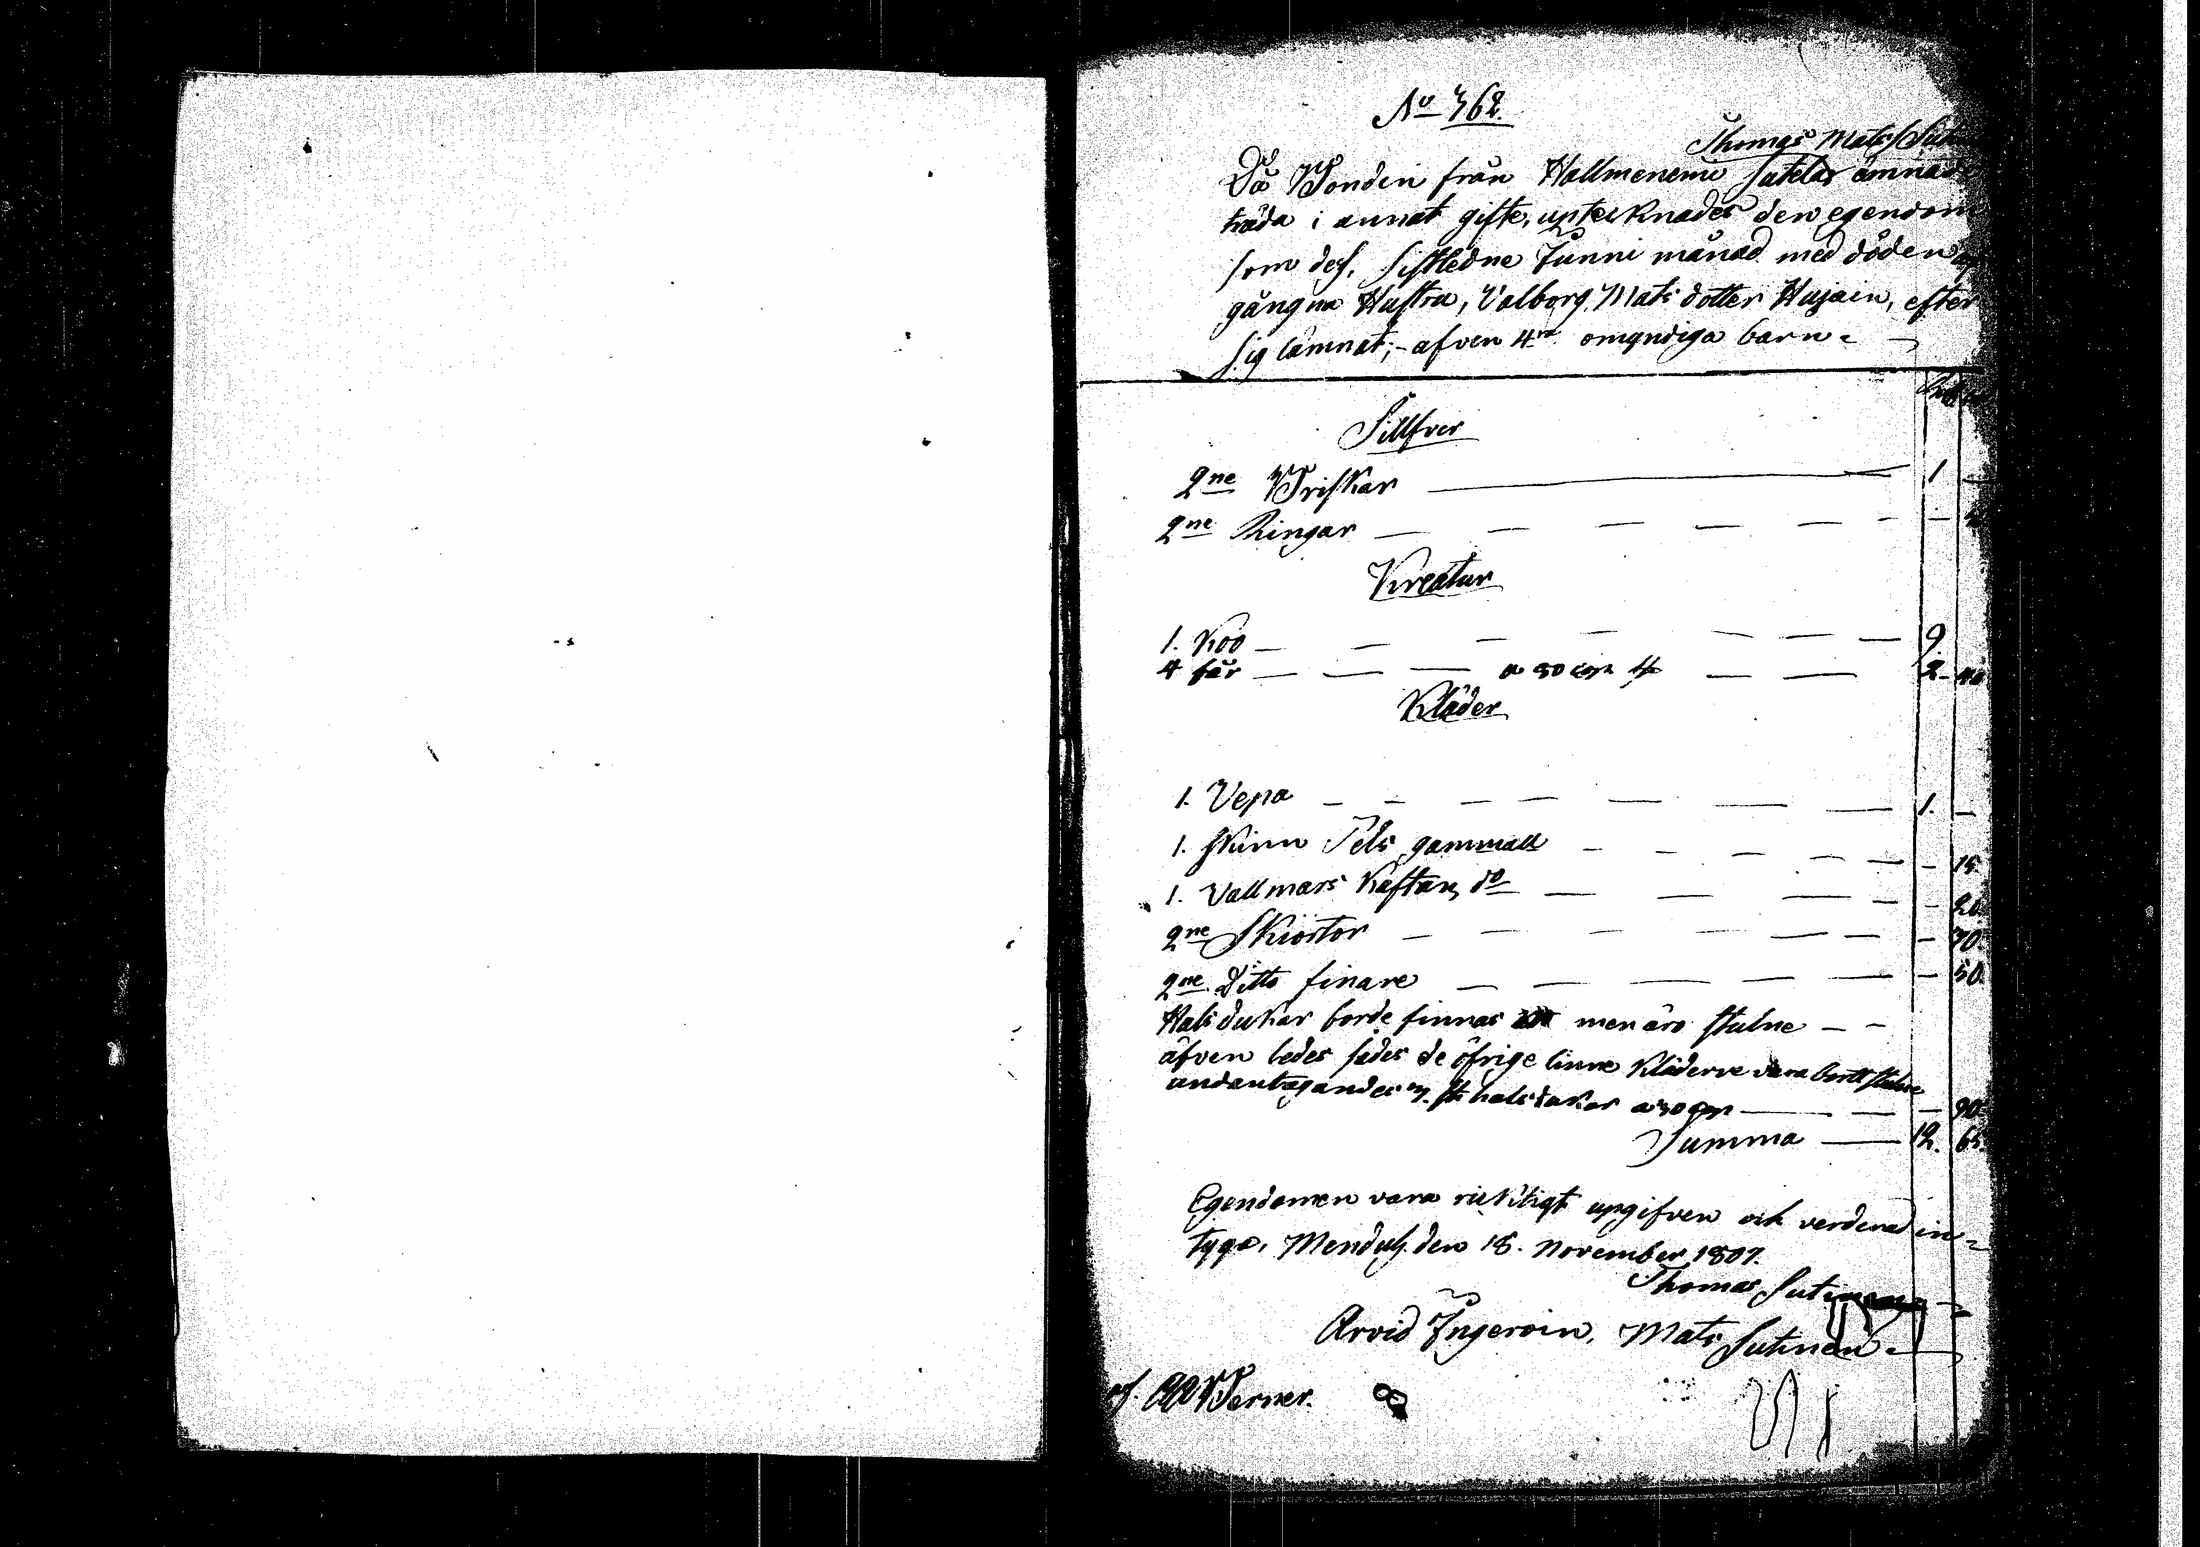 No 362.
Thomas Mats S
Då Bonden från Hallmeneme Sutela ämnade
träda i annat gifte, upteknades den egendom
som dess, sistledne Junni månad med döden af
gångna Hustru, Valborg Mats dotter Hujain, efter
sig lämnat; - afven 4ra omyndiga barn -
Sillfver
2ne Briskar — 1 —
2ne Ringar — — — — — —
Kreatur
1. Koo — — — — — — — 9.
4 får — — — a 50 cop st — — 2 - 40
Kläder
1. Vepa — — — — — — — 1. —
1. skinn Pels gammall — — — — — - 15.
1. Vallmars Kaftan, do — — — — - 20.
2ne Skiortor — — — — — — - 70.
2ne Ditto finare — — — — — - 50.
Hals dukar borde finnas men äro stulne — -
äfven ledes sades de öfrige linne Kläderne vara bortt stulne
undantagandes 3. st halsdukar a 30 cop — — — 90.
Summa — 12. 65.
Egendomen vara ricktigt upgifven och verderad in-
tyga, Menduls. den 18. November 1807.
Thomas Sutinen
Arvid Ingeroin, Mats Sutinen -
af. Werner.